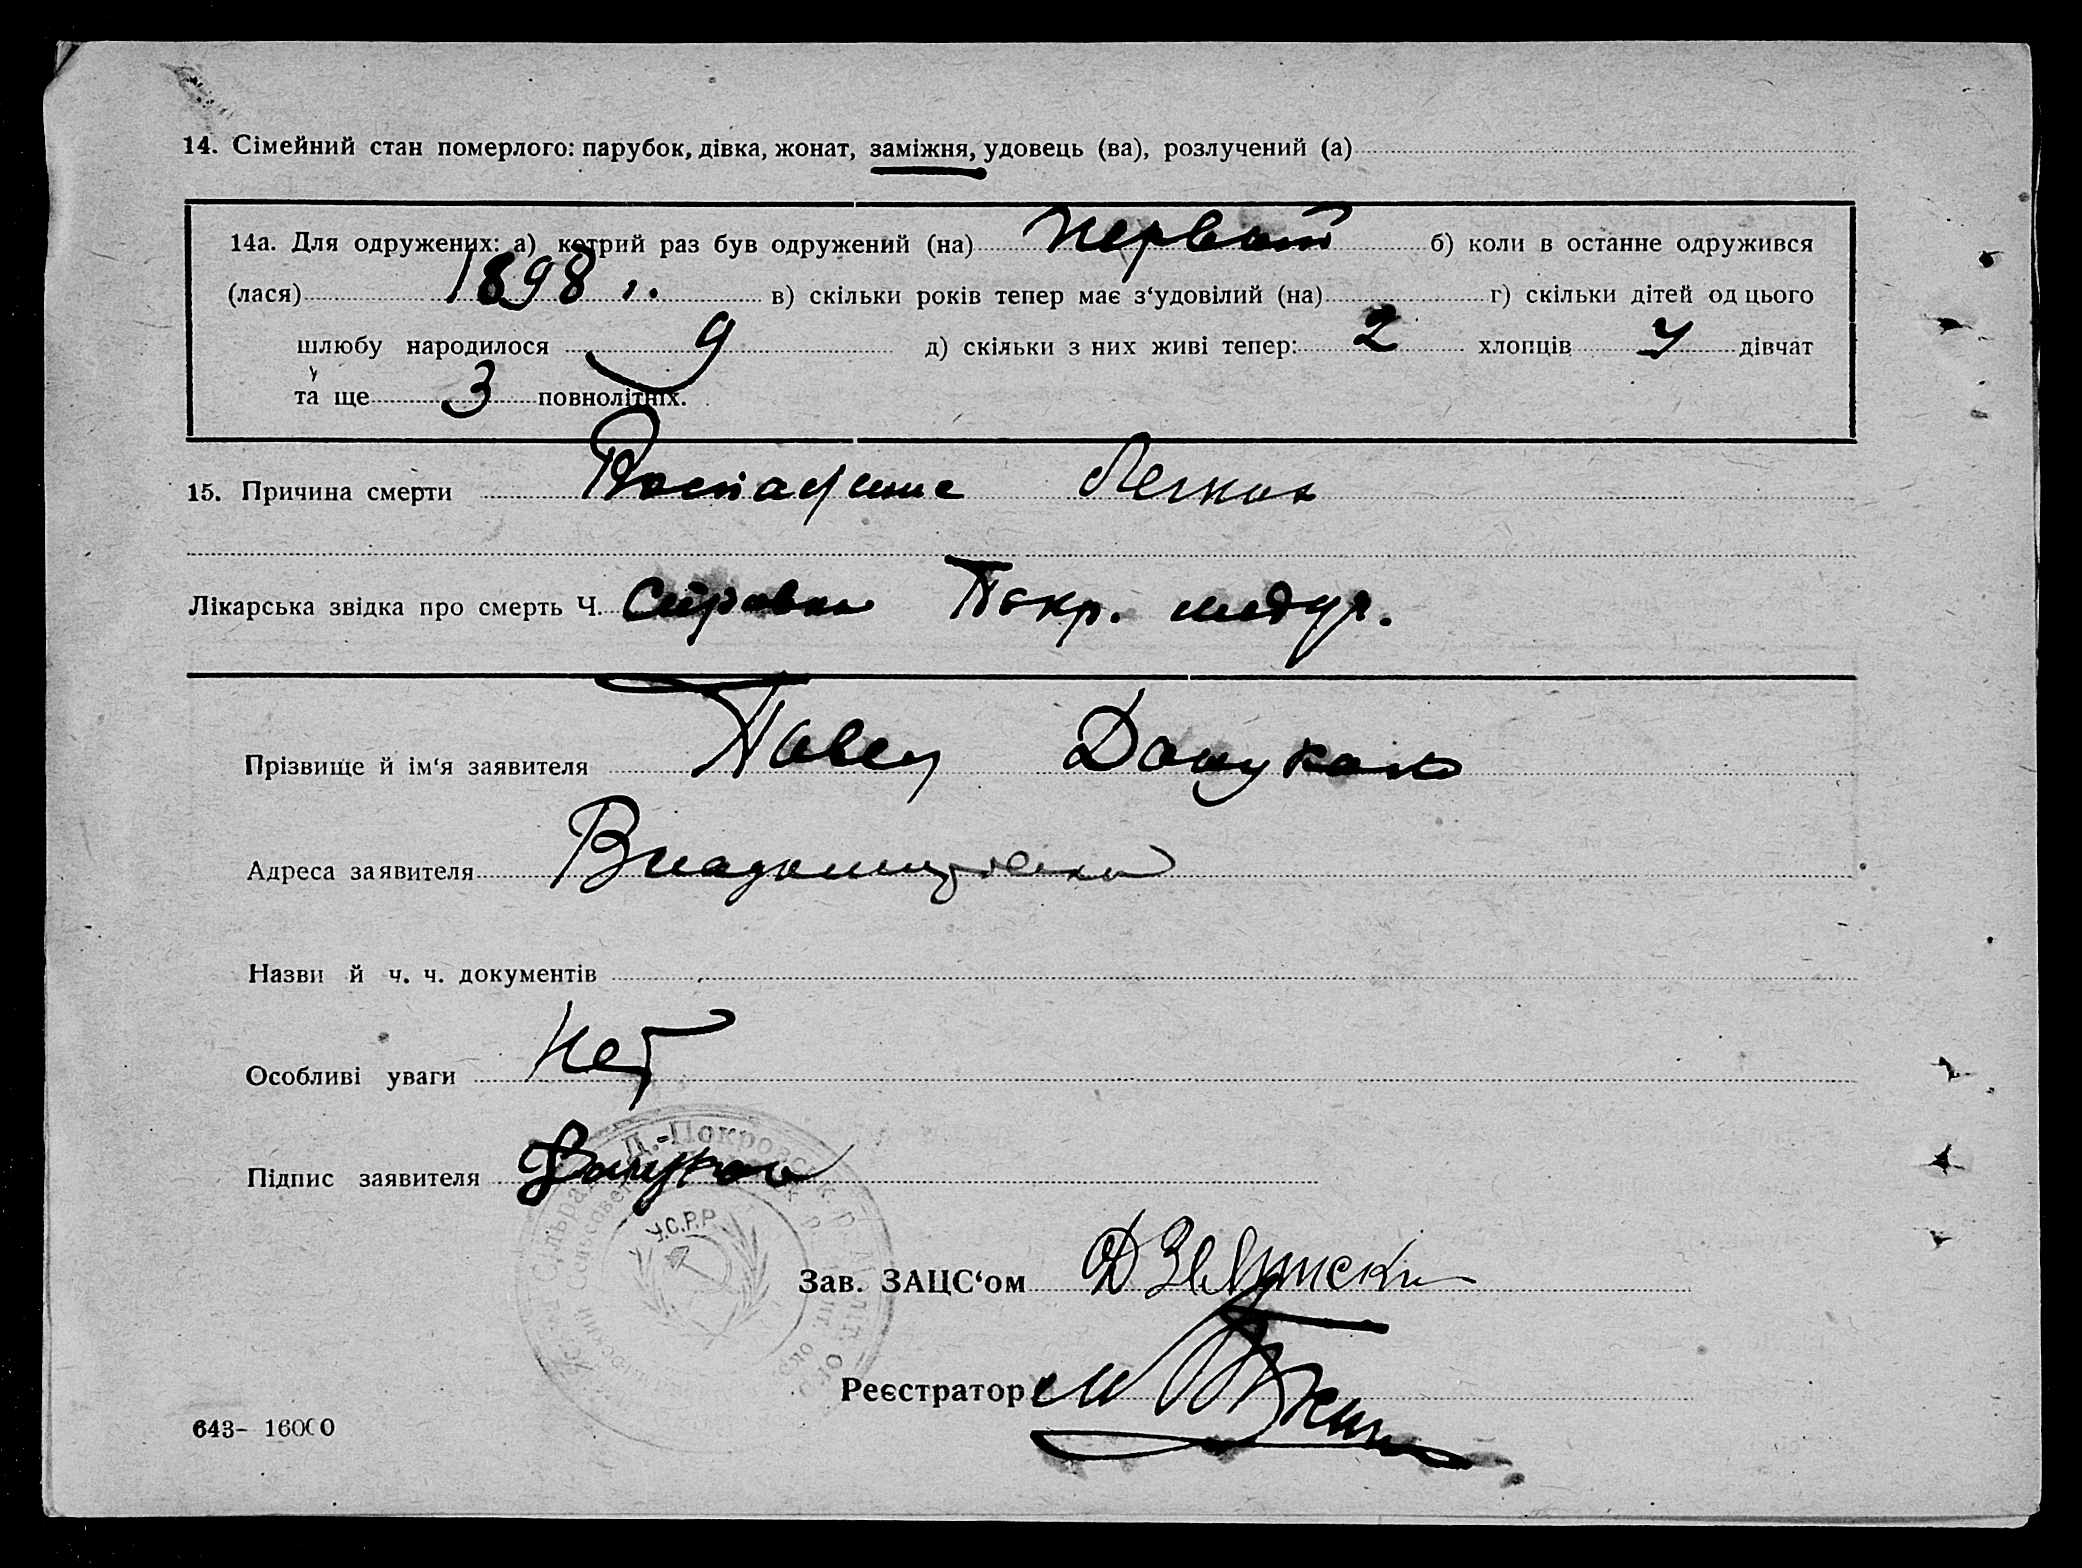 14. Сімейний стан померлого: парубок, дівка, жонат, заміжня, удовець (ва), розлучений (а)
14а. Для одружених: а) котрий раз був одружений (на) первый б) коли в останне одружився
(лася) 1898 г. в) скільки років тепер має з'удовілий (на) г) скільки дітей од цього
шлюбу народилося 9 д) скільки з них живі тепер: 2 хлопців дівчат
та ще 3 повнолітніх.
15. Причина смерти Воспаление Легких
Лікарська звідка про смерть Ч. Справка Покр. медуч.
Прізвище й ім'я заявителя Павел
Адреса заявителя
Назви й ч. ч. документів
Особливі уваги Нет
Підпис заявителя
Д.-Покровськ
У.С.Р.Р.
Зав. ЗАЦС'ом
Реєстратор
643– 16000